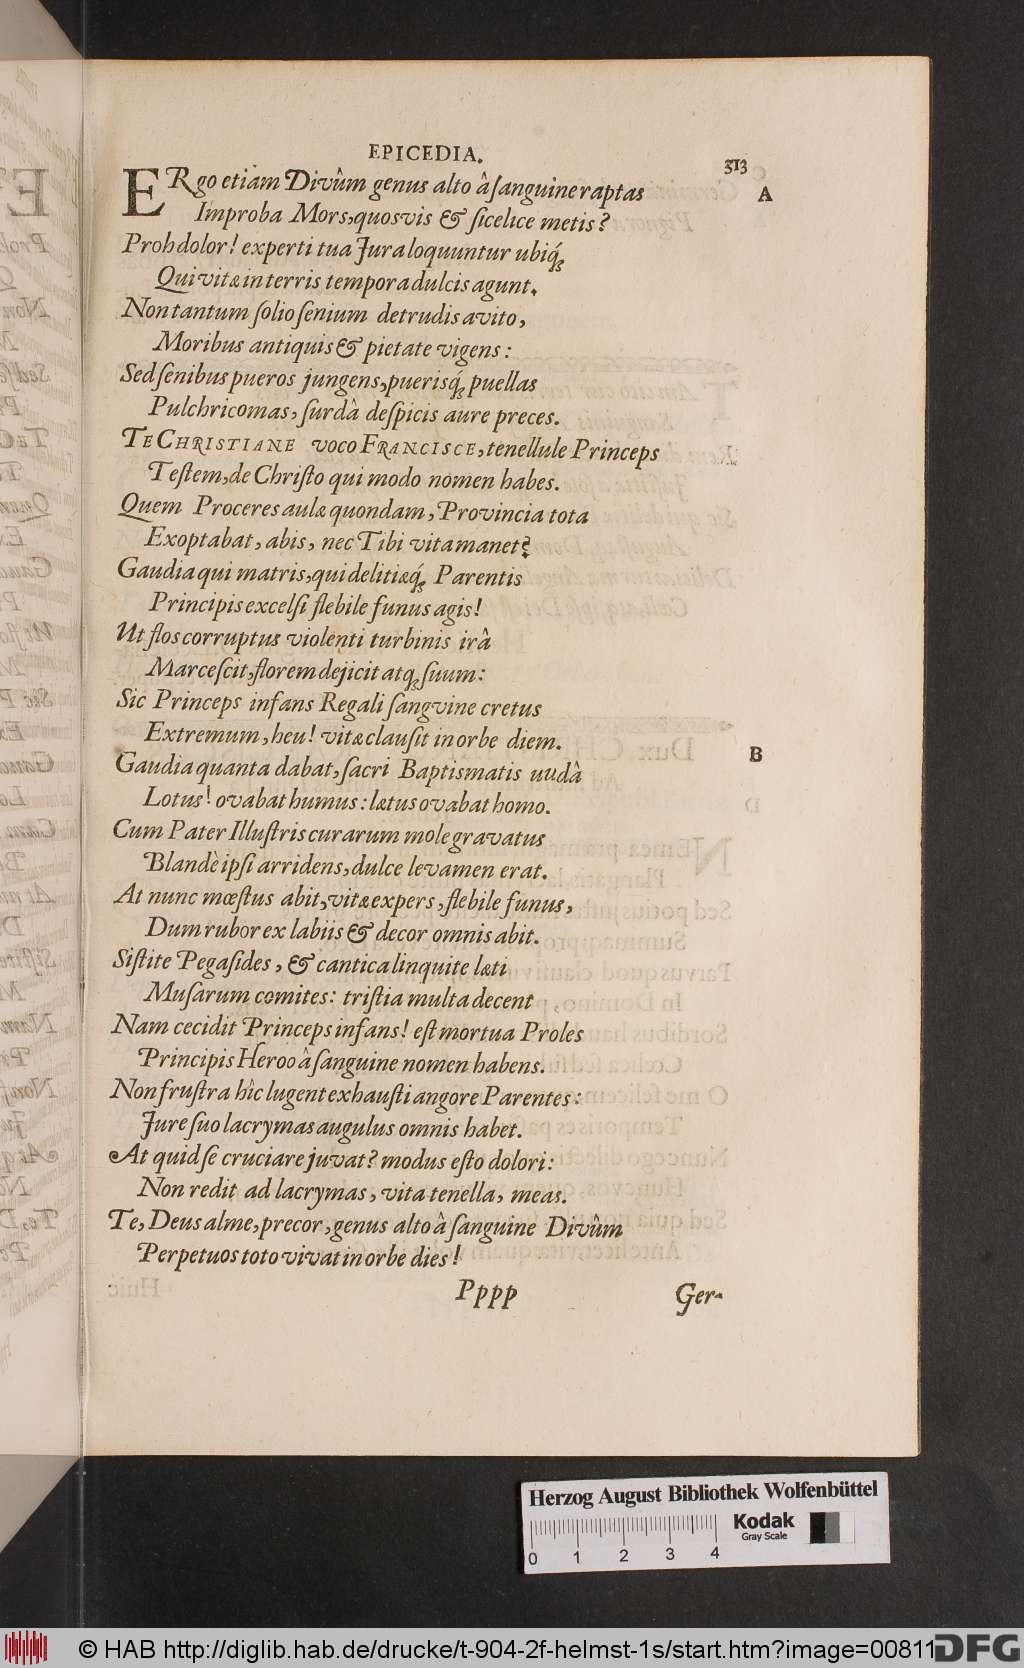 EPICEDIA.
313
ERgo etiam Divûm genus alto â sanguine raptas
A
Improba Mors, quosvis & sicelice metis?
Proh dolor! experti tua Jura loquuntur ubiq́;
Qui vitæ in terris tempora dulcis agunt.
Non tantum solio senium detrudis avito,
Moribus antiquis & pietate vigens:
Sed senibus pueros jungens, puerisq́; puellas
Pulchricomas, surdâ despicis aure preces.
TE CHRISTIANE voco FRANCISCE, tenellule Princeps
Testem, de Christo qui modo nomen habes.
Quem Proceres aulæ quondam, Provincia tota
Exoptabat, abis, nec Tibi vita manet?
Gaudia qui matris, qui delitiæq́; Parentis
Principis excelsi flebile funus agis!
Ut flos corruptus violenti turbinis irâ
Marcescit, florem dejicit atq; suum:
Sic Princeps infans Regali sangvine cretus
Extremum, heu! vitæ clausit in orbe diem.
B
Gaudia quanta dabat, sacri Baptismatis uudâ
Lotus! ovabat humus: lætus ovabat homo.
Cum Pater Illustris curarum mole gravatus
Blandè ipsi arridens, dulce levamen erat.
At nunc mœstus abit, vitæ expers, flebile funus,
Dum rubor ex labiis & decor omnis abit.
Sistite Pegasides, & cantica linquite læti
Musarum comites: tristia multa decent
Nam cecidit Princeps infans! est mortua Proles
Principis Heroo â sanguine nomen habens.
Non frustra hîc lugent exhausti angore Parentes:
Jure suo lacrymas augulus omnis habet.
At quid se cruciare juvat? modus esto dolori:
Non redit ad lacrymas, vita tenella, meas.
Te, Deus alme, precor, genus alto â sanguine Divûm
Perpetuos toto vivat in orbe dies!
Pppp
Ger-
Herzog August Bibliothek Wolfenbüttel
Kodak
Gray Scale
0 1 2 3 4
© HAB http://diglib.hab.de/drucke/t-904-2f-helmst-1s/start.htm?image=00811
DFG